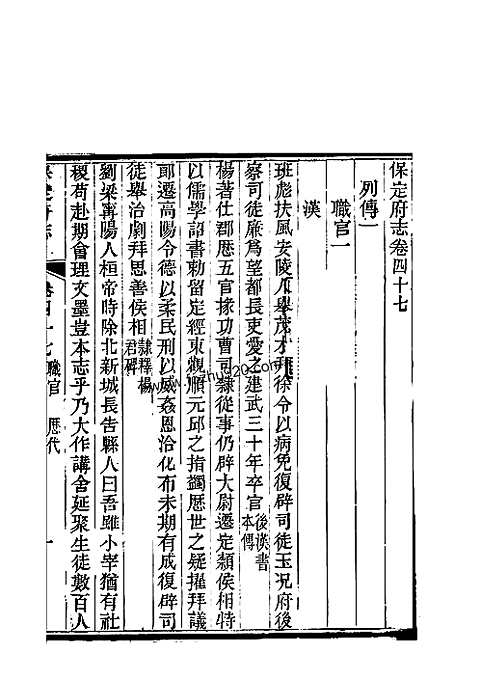 保定府志卷四十七
列傳一
職官一
漢
班彪扶風安陵人舉茂才拜徐令以病免復辟司徒玉况府後
察司徒廉爲望都長吏愛之建武三十年卒官後漢書本傳
楊著仕郡歷五官掾功曹司隸從事仍辟大尉遷定潁侯相特
以儒學詔書勅留定經東觀順元邱之指蠲歷世之疑擢拜議
郎遷高陽令德以柔民刑以威姦恩洽化布未期有成復辟司
徒舉治劇拜思善侯相隸釋楊君碑
劉梁甯陽人桓帝時除北新城長告縣人曰吾雖小宰猶有社
稷苟赴期會理文墨豈本志乎乃大作講舍延聚生徒數百人
卷四十七 職官 歷代 一
www.shuge20.com